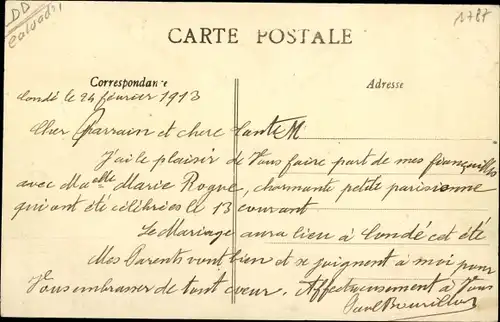 DD
Calvados
1787
CARTE POSTALE
Correspondance
Adresse
Condé le 24 février 1913
Cher Parrain et chere tante M
J'ai le plaisir de Vous faire part de mes fiançailles
avec Ma elle Marie Rogue, charmante petite parisienne
qui ont été célébrées le 13 courant
Le Mariage aura lieu à Condé cet été
Mes Parents vont bien et se joignent à moi pour
Vous embrasser de tout coeur. Affectueusement à Vous
Paul